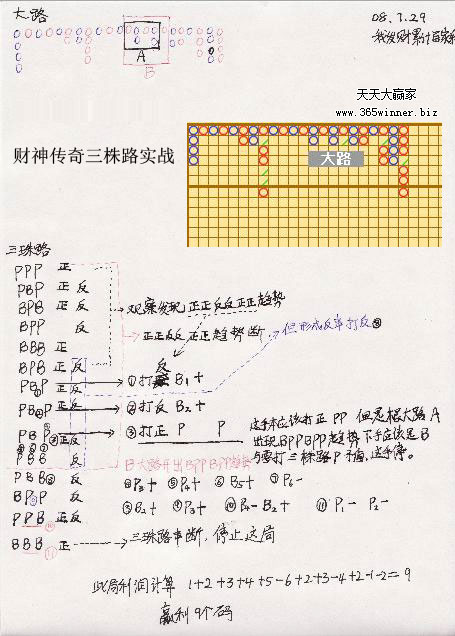 大路
08.7.29
我发财累计百家
A
B
天天大赢家
www.365winner.biz
财神传奇三株路实战
大路
三珠路
PPP 正
PBP 正 反
BPB 正 反
BPP 反
BBB 正
BPB 正 反
PBP
PBP
PBP 正反
PBB 反
PBB 反
BPP 反
PPB 正反
BBB 正
观察发现正正反反正正趋势
正正反反正正趋势断
但形成反率打反
反
①打 B₁+
②打反 B₂+
③打正 P P
这手本应该打正PP 但是根大路A
出现BPPBPP趋势下手应该是B
与要打三株路P矛盾,这手停。
B大路开出BPPBPP趋势
④P₃+ ⑤P₄+ ⑥B₅+ ⑦P₆-
⑧B₂+ ⑨P₃+ ⑩P₄-B₂+ ⑪P₁- P₂-
三珠路中断,停止这局
此局利润计算 1+2+3+4+5-6+2+3-4+2-1-2=9
赢利9个码